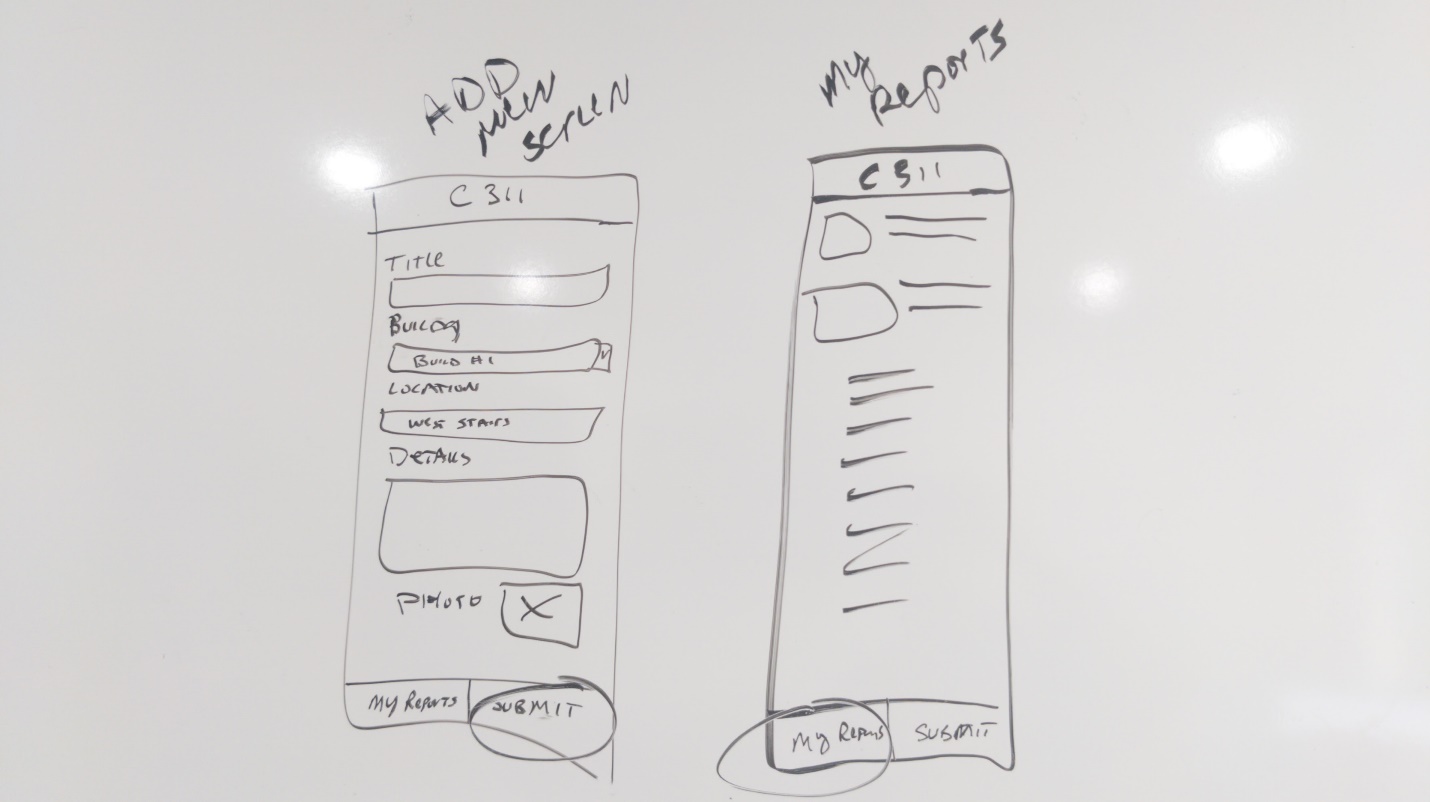 ADD
NEW
SCREEN
C 311
TITLE
BUILDG
BUILD #1
LOCATION
WEST STAIRS
DETAILS
PHOTO
X
MY REPORTS
SUBMIT
MY
REPORTS
C 311
MY REPORTS
SUBMIT